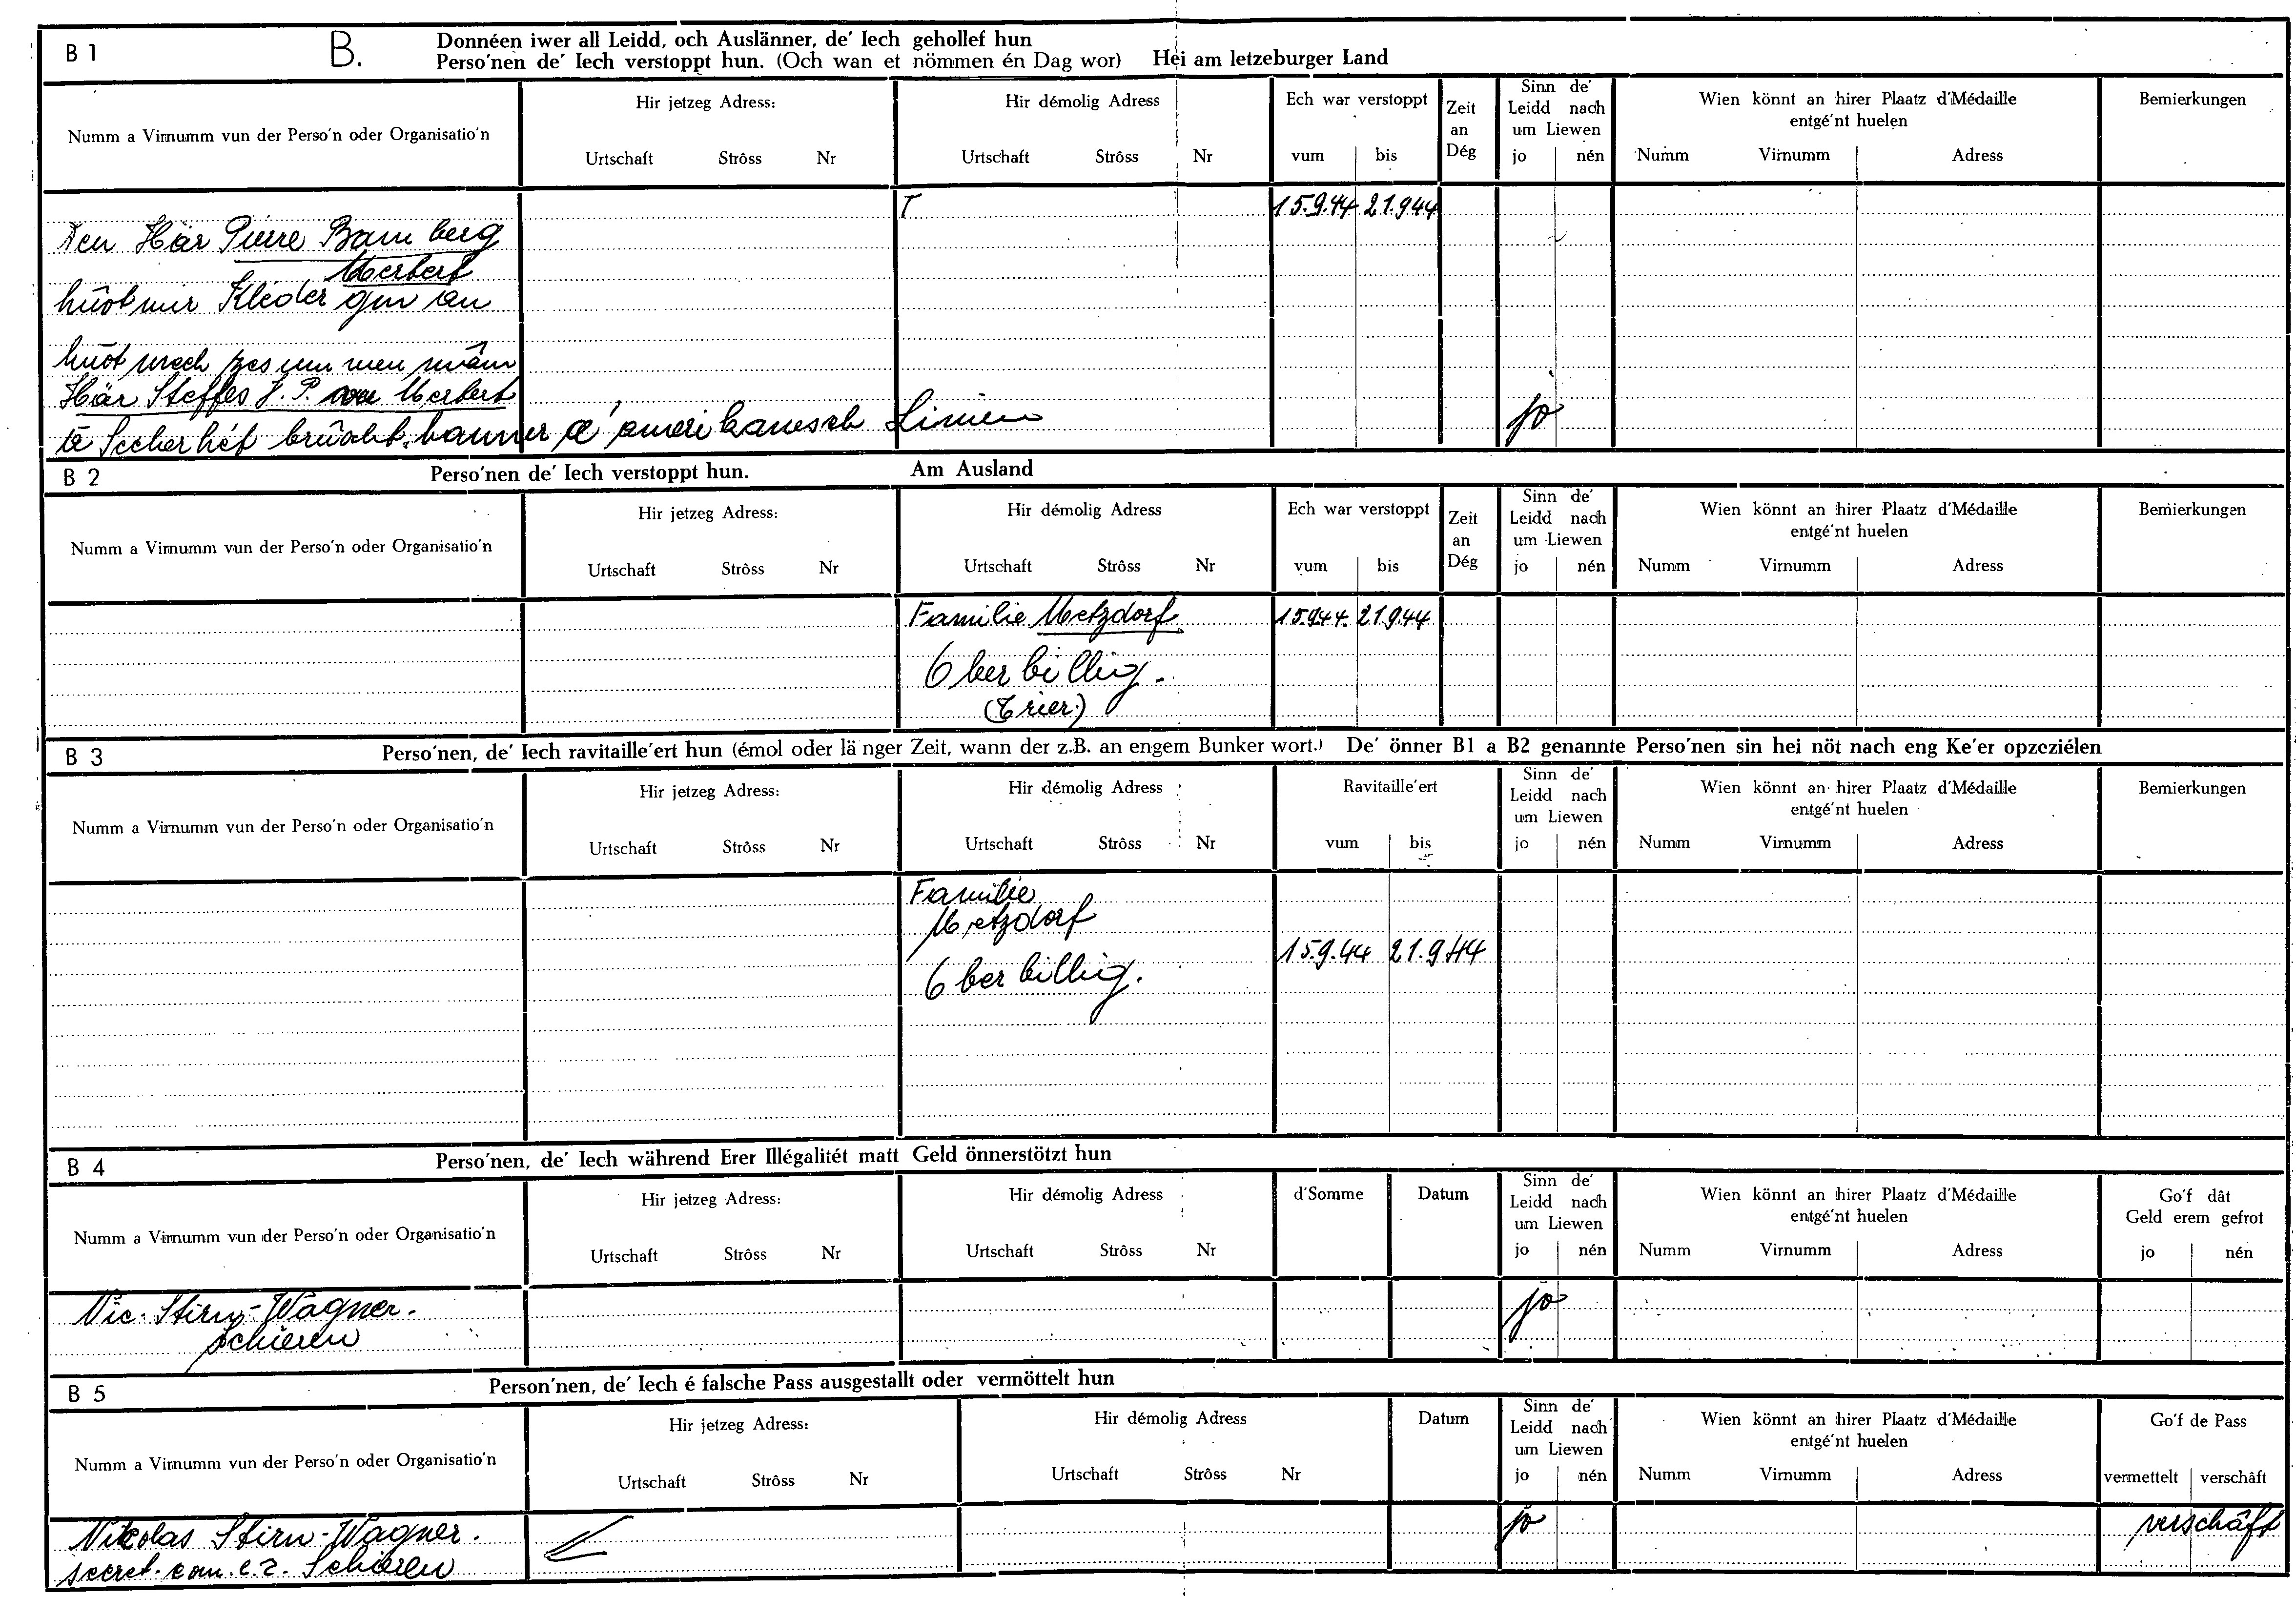 B 1 B. Donnéen iwer all Leidd, och Auslänner, de' Iech gehollef hun
Perso'nen de' Iech verstoppt hun. (Och wan et nömmen én Dag wor) Hei am letzeburger Land
Numm a Virnumm vun der Perso'n oder Organisatio'n
Hir jetzeg Adress:
Urtschaft Strôss Nr
Hir démolig Adress
Urtschaft Strôss Nr
Ech war verstoppt
vum bis
Zeit
an
Dég
Sinn de'
Leidd nach
um Liewen
jo nén
Wien könnt an hirer Plaatz d'Médaille
entgé'nt huelen
Numm Virnumm Adress
Bemierkungen
15.9.44 21.9.44
Den Här Pierre Bamberg
Mertert
huot mir Kleder gin an
huot mech
Här Steffes J. P. Mertert
brûocht hanner d' amerikanesch Linien
jo
B 2 Perso'nen de' Iech verstoppt hun. Am Ausland
Numm a Virnumm vun der Perso'n oder Organisatio'n
Hir jetzeg Adress:
Urtschaft Strôss Nr
Hir démolig Adress
Urtschaft Strôss Nr
Ech war verstoppt
vum bis
Zeit
an
Dég
Sinn de'
Leidd nach
um Liewen
jo nén
Wien könnt an hirer Plaatz d'Médaille
entgé'nt huelen
Numm Virnumm Adress
Bemierkungen
Familie Metzdorf 15.9.44. 21.9.44
Oberbillig.
(Trier)
B 3 Perso'nen, de' Iech ravitaille'ert hun (émol oder länger Zeit, wann der z.B. an engem Bunker wort.) De' önner B1 a B2 genannte Perso'nen sin hei nöt nach eng Ke'er opzeziélen
Numm a Virnumm vun der Perso'n oder Organisatio'n
Hir jetzeg Adress:
Urtschaft Strôss Nr
Hir démolig Adress
Urtschaft Strôss Nr
Ravitaille'ert
vum bis
Sinn de'
Leidd nach
um Liewen
jo nén
Wien könnt an hirer Plaatz d'Médaille
entgé'nt huelen
Numm Virnumm Adress
Bemierkungen
Familie
Metzdorf
15.9.44 21.9.44
Oberbillig.
B 4 Perso'nen, de' Iech während Erer Illégalitét matt Geld önnerstötzt hun
Numm a Virnumm vun der Perso'n oder Organisatio'n
Hir jetzeg Adress:
Urtschaft Strôss Nr
Hir démolig Adress
Urtschaft Strôss Nr
d'Somme Datum
Sinn de'
Leidd nach
um Liewen
jo nén
Wien könnt an hirer Plaatz d'Médaille
entgé'nt huelen
Numm Virnumm Adress
Go'f dât
Geld erem gefrot
jo nén
Nic. Stirn-Wagner. jo
Schieren
B 5 Person'nen, de' Iech é falsche Pass ausgestallt oder vermöttelt hun
Numm a Virnumm vun der Perso'n oder Organisatio'n
Hir jetzeg Adress:
Urtschaft Strôss Nr
Hir démolig Adress
Urtschaft Strôss Nr
Datum
Sinn de'
Leidd nach
um Liewen
jo nén
Wien könnt an hirer Plaatz d'Médaille
entgé'nt huelen
Numm Virnumm Adress
Go'f de Pass
vermettelt verschâft
Nikolas Stirn-Wagner. jo verschâft
secret. com. e.r. Schieren